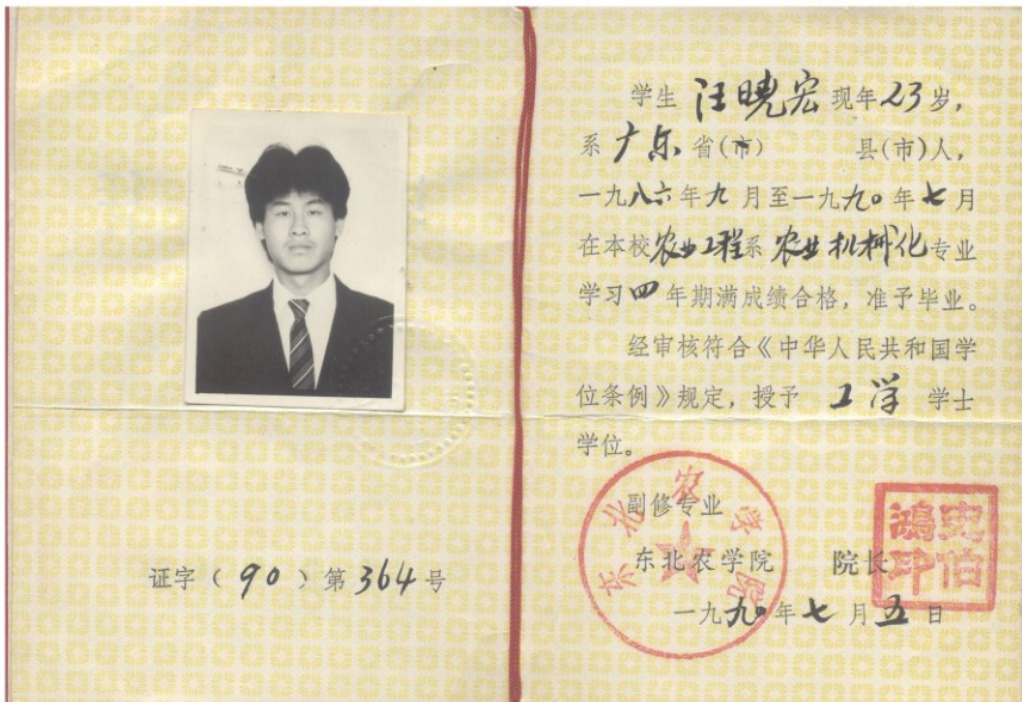 证字（90）第364号
学生 汪晓宏 现年23岁，
系 广东 省(市) 县(市)人，
一九八六年九月至一九九〇年七月
在本校农业工程系农业机械化专业
学习四年期满成绩合格，准予毕业。
经审核符合《中华人民共和国学
位条例》规定，授予 工学 学士
学位。
副修专业
东北农学院 院长
一九九〇年七月五日
东北农学院
史伯鸿印